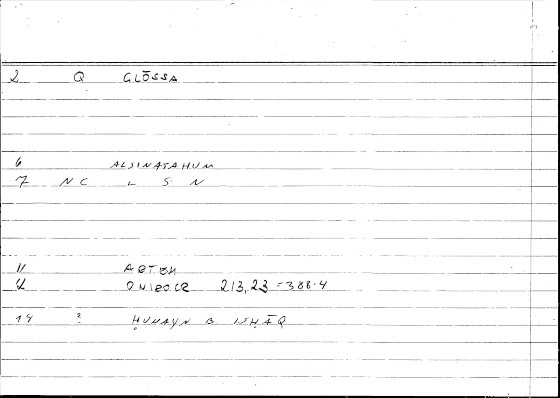 2 Q GLŌSSA
6 ALSINATAHUM
7 NC L S N
11 ARTEM
12 ONIROCR 213,23 = 388.4
14 ? ḤUNAYN B ISḤĀQ